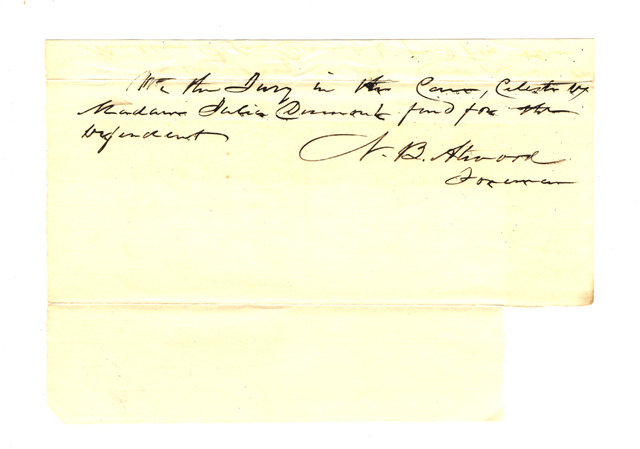 We the Jury in the Case, Celeste vs
Madame Julia Dumont find for the
Defendent
N. B. Atwood
Foreman